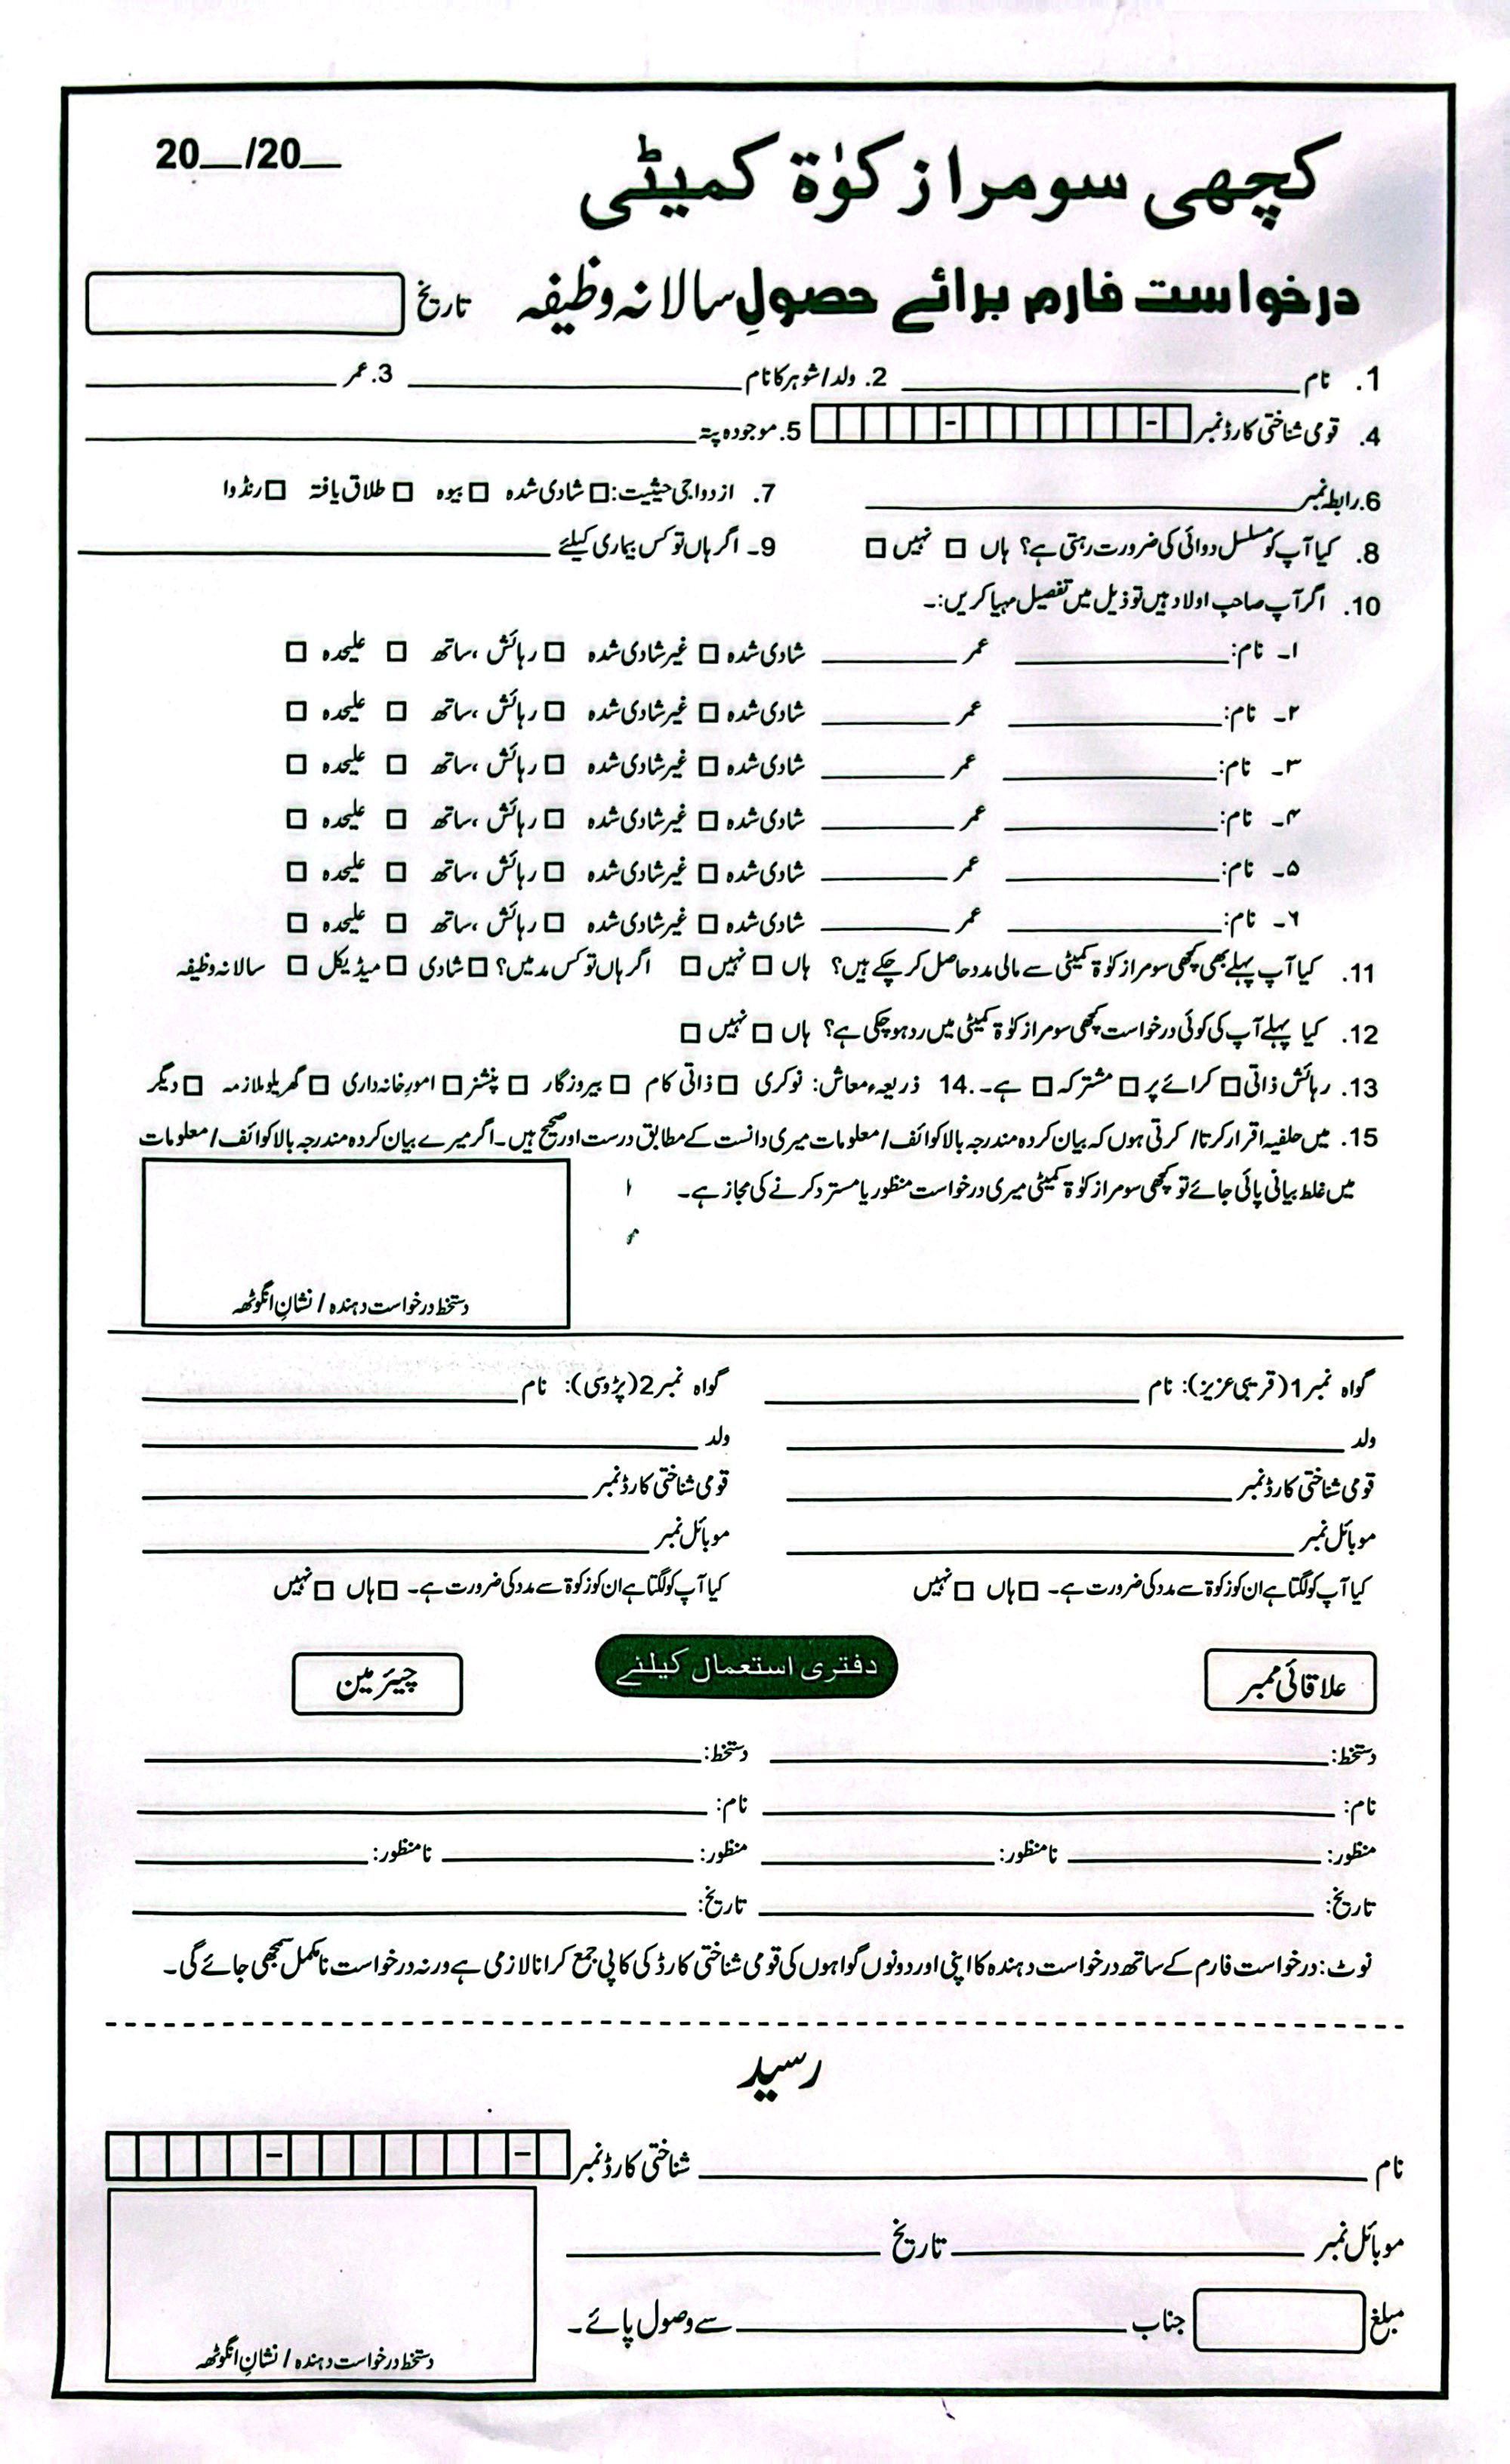 20__/20__
کچھی سومرا زکوٰۃ کمیٹی
درخواست فارم برائے حصولِ سالانہ وظیفہ تاریخ
1. نام ________ 2. ولد/شوہر کا نام ________ 3. عمر ________
4. قومی شناختی کارڈ نمبر - - 5. موجودہ پتہ ________
6. رابطہ نمبر ________ 7. ازدواجی حیثیت: □ شادی شدہ □ بیوہ □ طلاق یافتہ □ رنڈوا
8. کیا آپ کو مسلسل دوائی کی ضرورت رہتی ہے؟ ہاں □ نہیں □ 9۔ اگر ہاں تو کس بیماری کیلئے ________
10. اگر آپ صاحبِ اولاد ہیں تو ذیل میں تفصیل مہیا کریں:۔
۱۔ نام: ________ عمر ________ شادی شدہ □ غیر شادی شدہ □ رہائش، ساتھ □ علیحدہ □
۲۔ نام: ________ عمر ________ شادی شدہ □ غیر شادی شدہ □ رہائش، ساتھ □ علیحدہ □
۳۔ نام: ________ عمر ________ شادی شدہ □ غیر شادی شدہ □ رہائش، ساتھ □ علیحدہ □
۴۔ نام: ________ عمر ________ شادی شدہ □ غیر شادی شدہ □ رہائش، ساتھ □ علیحدہ □
۵۔ نام: ________ عمر ________ شادی شدہ □ غیر شادی شدہ □ رہائش، ساتھ □ علیحدہ □
۶۔ نام: ________ عمر ________ شادی شدہ □ غیر شادی شدہ □ رہائش، ساتھ □ علیحدہ □
11. کیا آپ پہلے بھی کچھی سومرا زکوٰۃ کمیٹی سے مالی مدد حاصل کر چکے ہیں؟ ہاں □ نہیں □ اگر ہاں تو کس مد میں؟ □ شادی □ میڈیکل □ سالانہ وظیفہ
12. کیا پہلے آپ کی کوئی درخواست کچھی سومرا زکوٰۃ کمیٹی میں رد ہو چکی ہے؟ ہاں □ نہیں □
13. رہائش ذاتی □ کرائے پر □ مشترکہ □ ہے۔ 14. ذریعہ معاش: نوکری □ ذاتی کام □ بیروزگار □ پنشنر □ امورِ خانہ داری □ گھریلو ملازمہ □ دیگر
15. میں حلفیہ اقرار کرتا/ کرتی ہوں کہ بیان کردہ مندرجہ بالا کوائف/ معلومات میری دانست کے مطابق درست اور صحیح ہیں۔ اگر میرے بیان کردہ مندرجہ بالا کوائف/ معلومات
میں غلط بیانی پائی جائے تو کچھی سومرا زکوٰۃ کمیٹی میری درخواست منظور یا مسترد کرنے کی مجاز ہے۔
دستخط درخواست دہندہ / نشانِ انگوٹھہ
گواہ نمبر 1 (قریبی عزیز): نام ________ گواہ نمبر 2 (پڑوسی): نام ________
ولد ________ ولد ________
قومی شناختی کارڈ نمبر ________ قومی شناختی کارڈ نمبر ________
موبائل نمبر ________ موبائل نمبر ________
کیا آپ کو لگتا ہے ان کو زکوۃ سے مدد کی ضرورت ہے۔ □ ہاں □ نہیں کیا آپ کو لگتا ہے ان کو زکوۃ سے مدد کی ضرورت ہے۔ □ ہاں □ نہیں
علاقائی ممبر دفتری استعمال کیلئے چیئر مین
دستخط: ________ دستخط: ________
نام: ________ نام: ________
منظور: ________ نامنظور: ________ منظور: ________ نامنظور: ________
تاریخ: ________ تاریخ: ________
نوٹ: درخواست فارم کے ساتھ درخواست دہندہ کا اپنی اور دونوں گواہوں کی قومی شناختی کارڈ کی کاپی جمع کرانا لازمی ہے ورنہ درخواست نامکمل سمجھی جائے گی۔
رسید
نام ________ شناختی کارڈ نمبر - -
موبائل نمبر ________ تاریخ ________
مبلغ جناب ________ سے وصول پائے۔
دستخط درخواست دہندہ / نشانِ انگوٹھہ